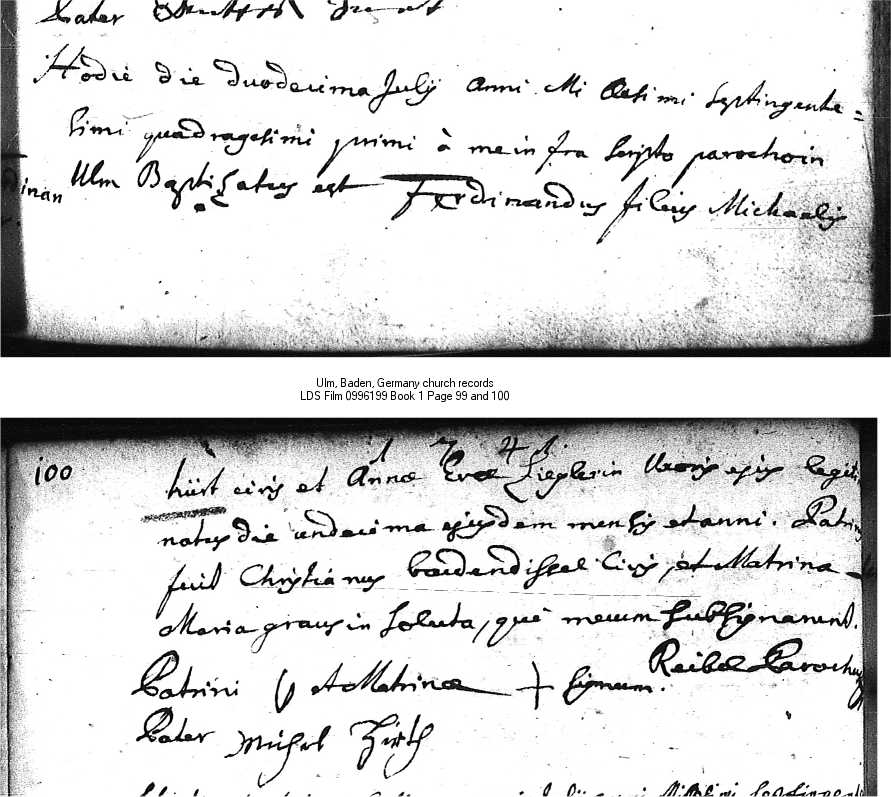 Pater
Hodie die duodecima July Anni Millesimi Septingente=
simi quadragesimi primi à me infra scripto parocho in
inan Ulm Baptizatus est Ferdinandus filius Michaelis
Ulm, Baden, Germany church records
LDS Film 0996199 Book 1 Page 99 and 100
1741
100 hürt civis et Annæ Evæ Zieglerin Uxoris ejus legiti
natus die undecima ejusdem mensis et anni. Patrinus
fuit Christianus civis, et Matrina
Maria grausin soluta, qui mecum subsignarunt.
Reibel Parochus
Patrini et Matrinæ + signum.
Pater Michel Hirth